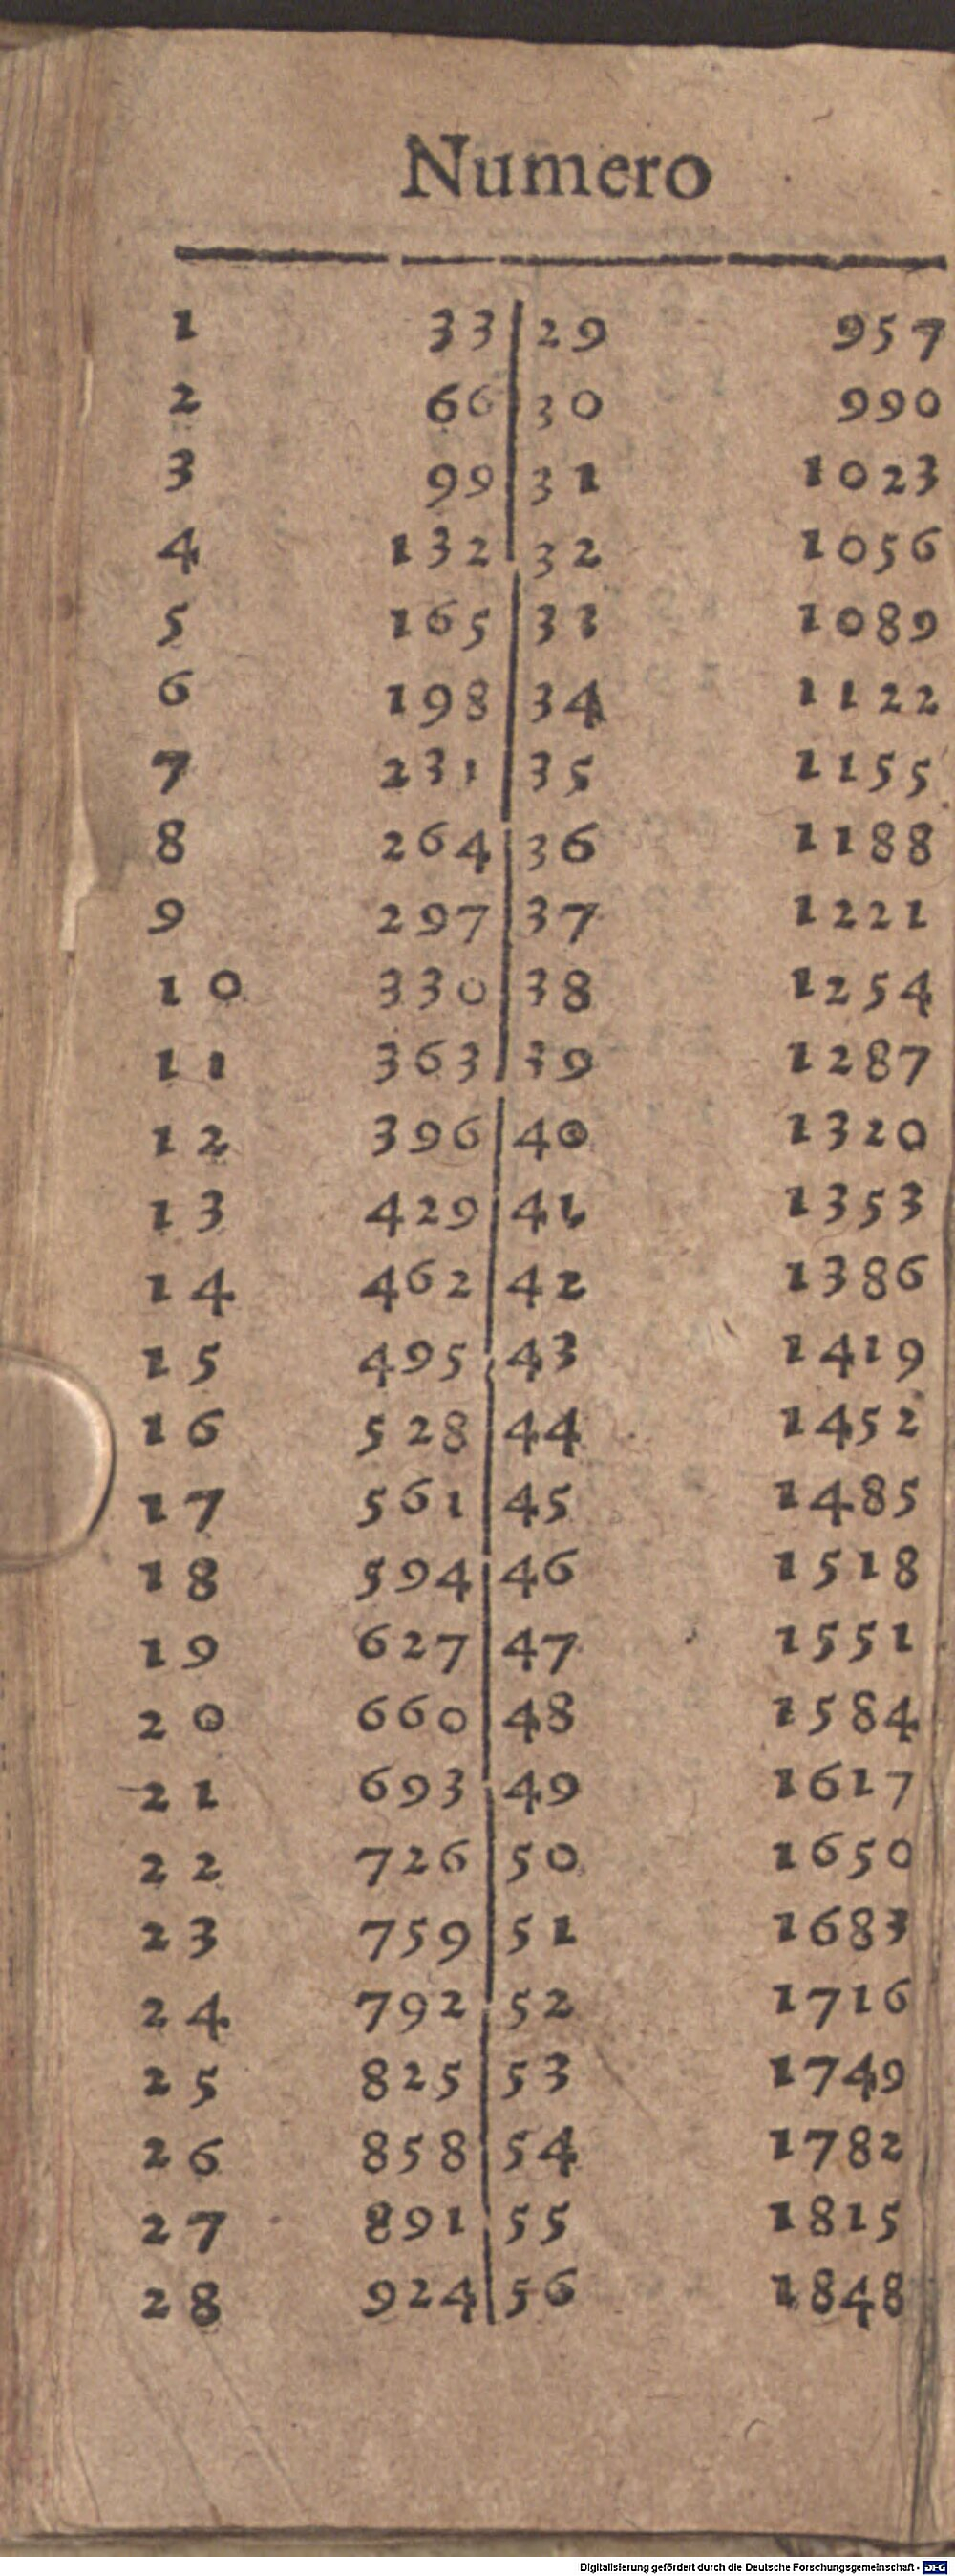 Numero
1 33 29 957
2 66 30 990
3 99 31 1023
4 132 32 1056
5 165 33 1089
6 198 34 1122
7 231 35 1155
8 264 36 1188
9 297 37 1221
10 330 38 1254
11 363 39 1287
12 396 40 1320
13 429 41 1353
14 462 42 1386
15 495 43 1419
16 528 44 1452
17 561 45 1485
18 594 46 1518
19 627 47 1551
20 660 48 1584
21 693 49 1617
22 726 50 1650
23 759 51 1683
24 792 52 1716
25 825 53 1749
26 858 54 1782
27 891 55 1815
28 924 56 1848
Digitalisierung gefördert durch die Deutsche Forschungsgemeinschaft - DFG